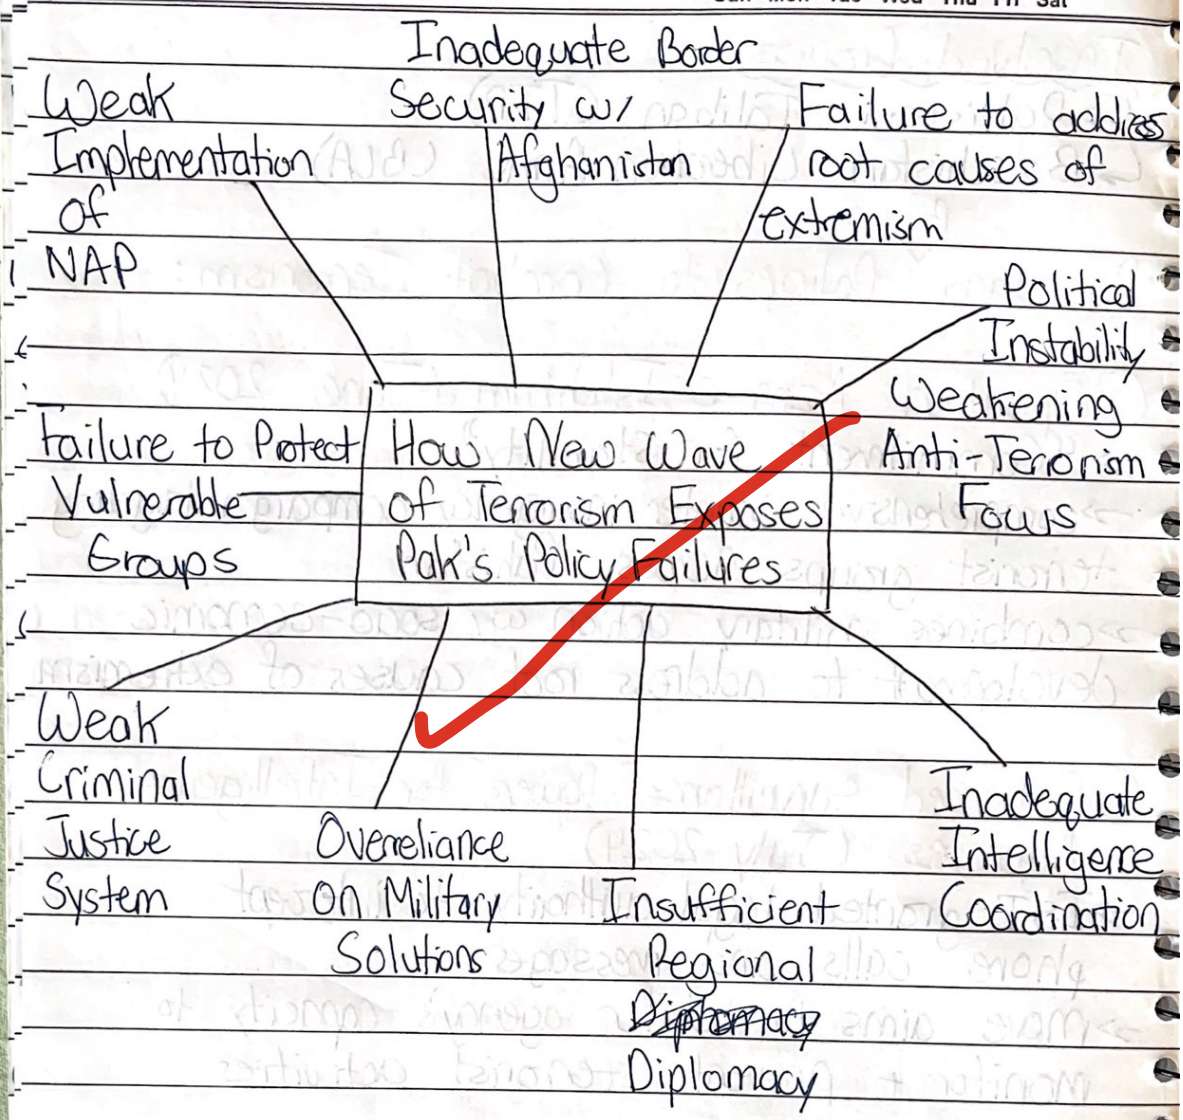 Sun Mon Tue Wed Thu Fri Sat
Inadequate Border
Security w/
Afghanistan
Weak
Implementation
of
NAP
Failure to address
root causes of
extremism
Political
Instability
Weakening
Anti-Terrorism
Focus
Failure to Protect
Vulnerable
Groups
How New Wave
of Terrorism Exposes
Pak's Policy Failures
Weak
Criminal
Justice
System
Overreliance
on Military
Solutions
Insufficient
Regional
Diplomacy
Diplomacy
Inadequate
Intelligence
Coordination